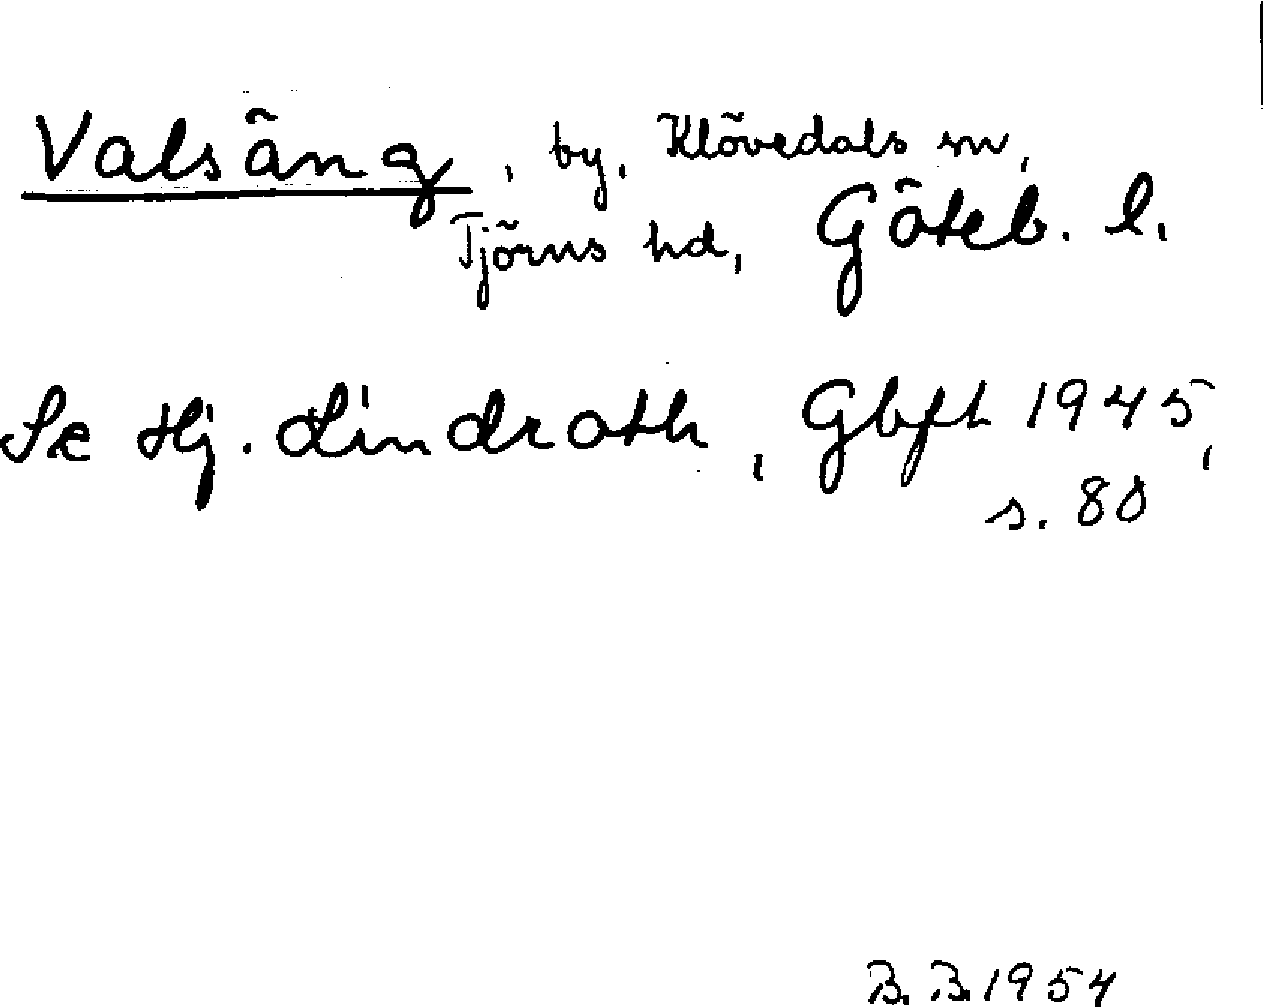 Valsäng, by, Klövedals sn,
Tjörns hd, Göteb. l.
Se Hj. Lindroth, Gbft 1945,
s. 80
B. B. 1954